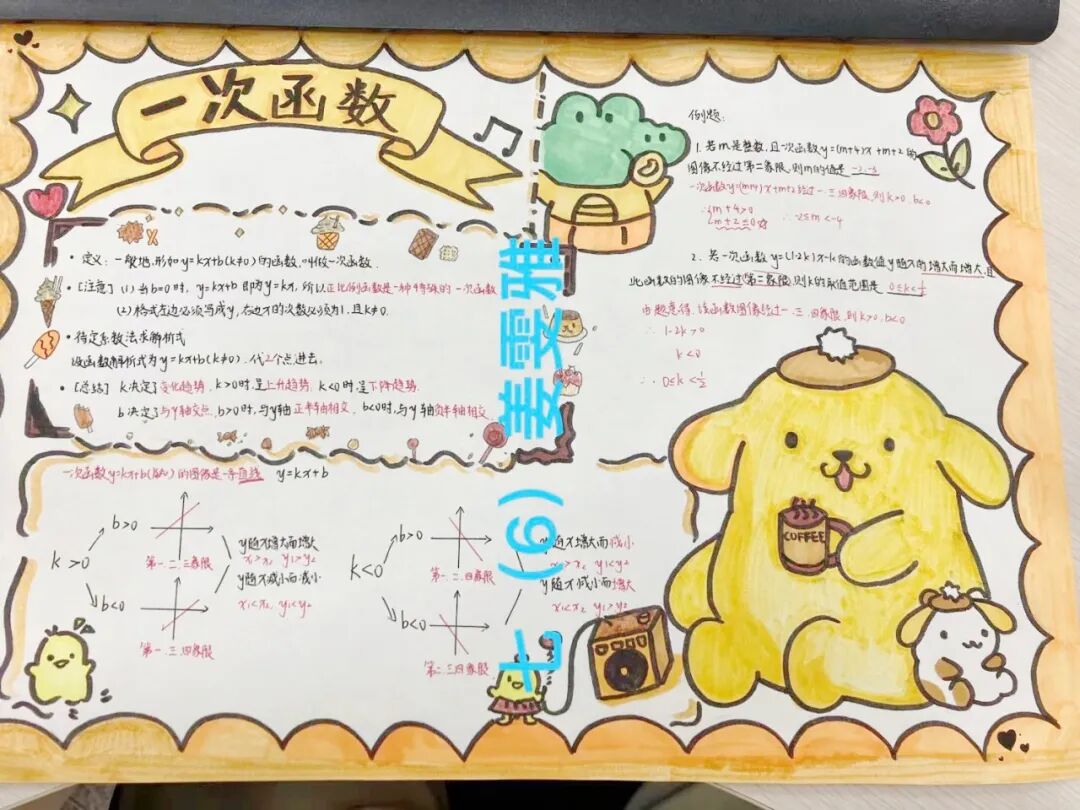 一次函数
· 定义：一般地，形如y=kx+b(k≠0)的函数，叫做一次函数.
· [注意] (1) 当b=0时，y=kx+b 即为y=kx，所以正比例函数是一种特殊的一次函数
(2) 格式左边必须写成y，右边x的次数必须为1，且k≠0.
· 待定系数法求解析式
设函数解析式为y=kx+b(k≠0).代2个点进去。
· [总结] k决定了变化趋势，k>0时，呈上升趋势，k<0时，呈下降趋势.
b决定了与y轴交点，b>0时，与y轴正半轴相交，b<0时，与y轴负半轴相交.
一次函数y=kx+b(k≠0)的图像是一条直线 y=kx+b
k>0
b>0
第一.二.三象限
b<0
第一.三.四象限
y随x增大而增大
x₁>x₂ y₁>y₂
y随x减小而减小
x₁<x₂ y₁<y₂
k<0
b>0
第一.二.四象限
b<0
第二.三.四象限
y随x增大而减小
x₁>x₂ y₁<y₂
y随x减小而增大
x₁<x₂ y₁>y₂
例题：
1. 若m是整数，且一次函数y=(m+4)x+m+2的
图像不经过第二象限，则m的值是 -2,-3
一次函数y=(m+4)x+m+2经过一.三.四象限，则k>0,b<0
∴{m+4>0
m+2≤0
∴-2≤m<-4
2. 若一次函数y=(1-2k)x-k的函数值y随x的增大而增大，且
此函数的图像不经过第二象限，则k的取值范围是 0≤k<½
由题意得.该函数图像经过一.三.四象限，则k>0,b<0
∴1-2k>0
k<0
∴0≤k<½
COFFEE
七（6）姜雯雅